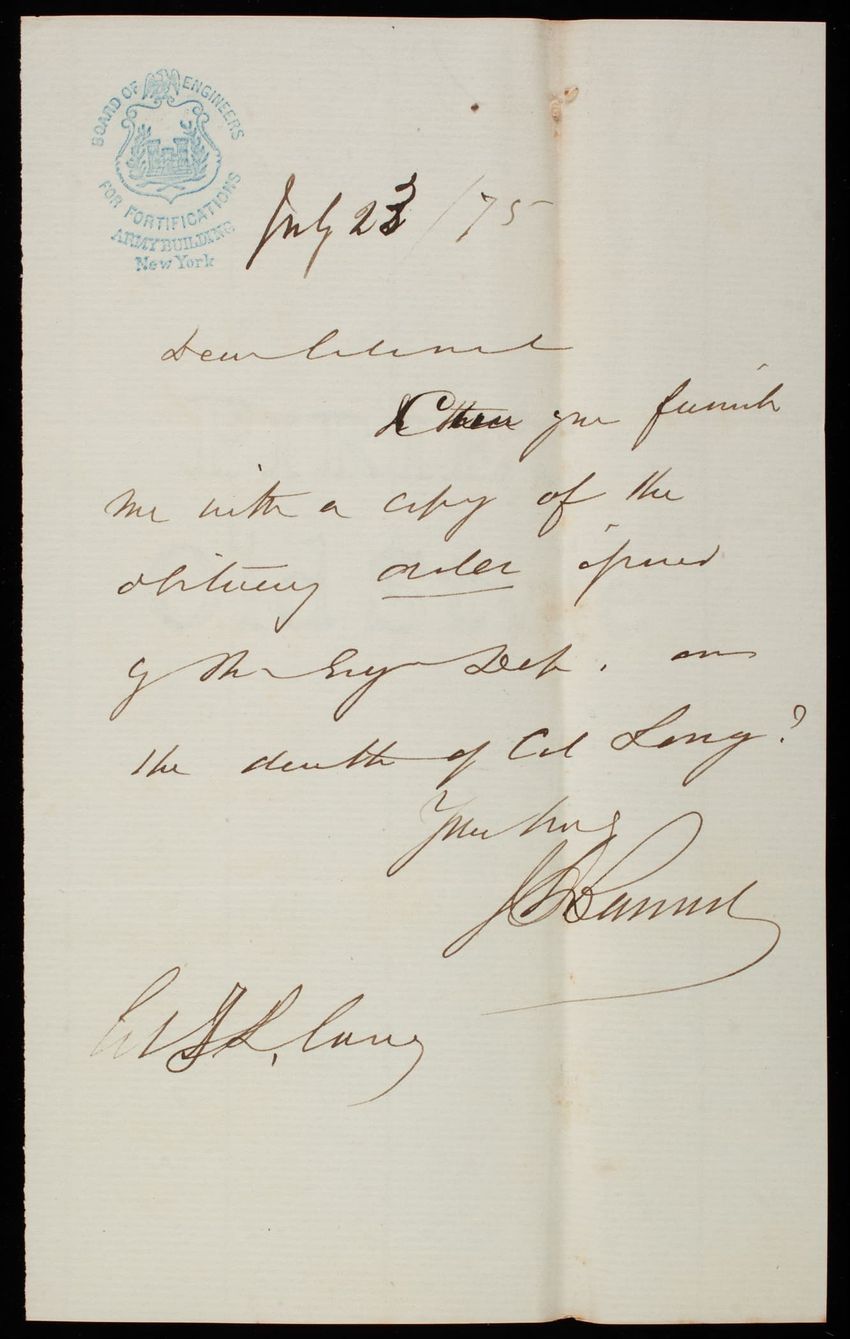 BOARD OF ENGINEERS
FOR FORTIFICATIONS
ARMY BUILDING
New York
July 23/75
Dear Colonel
Can you furnish
me with a copy of the
obituary order issued
by the Eng Dep. on
the death of Col Long?
Yours truly
J G Barnard
Col T. L. Casey